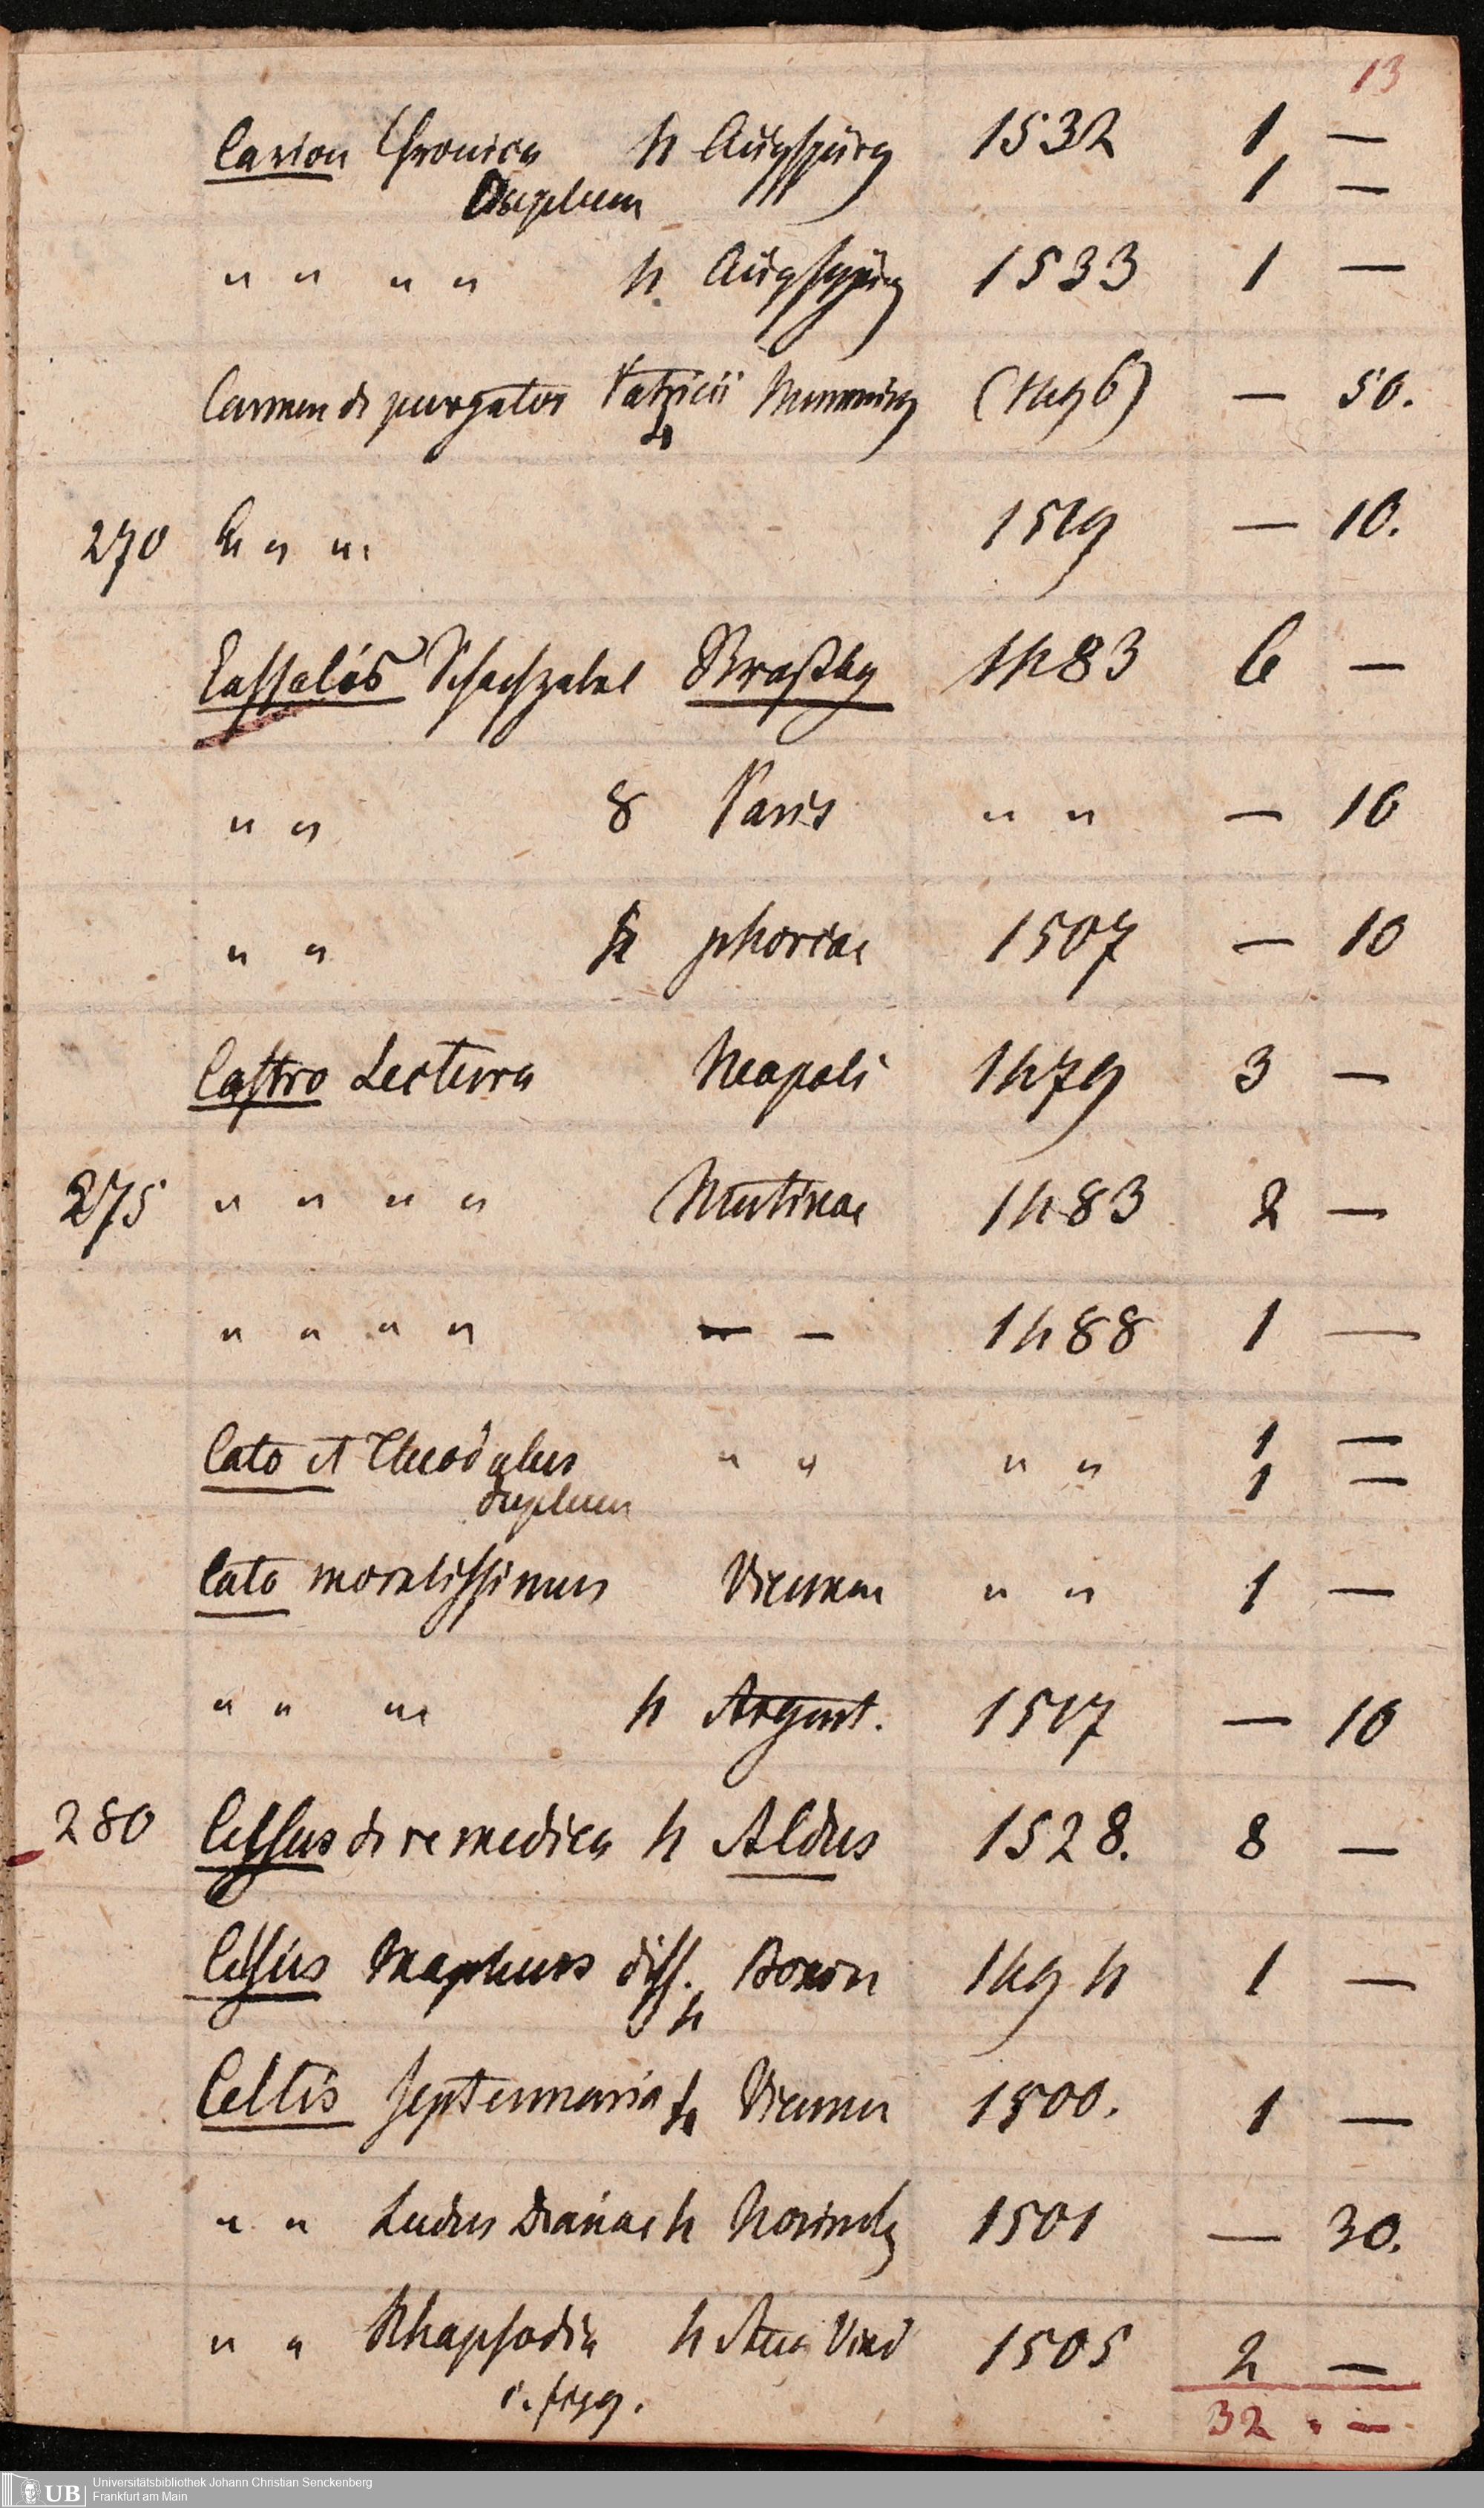 13
Carion Chronica 4 Augspurg 1532 1 —
Duplum 1 —
" " " " 4 Augspurg 1533 1 —
Carmen de purgator Patricii Memming (1496) — 50.
4
270 " " " 1519 — 10.
Cassalis Schachzabel Straßbg 1483 6 —
" " 8 Paris " " — 10
" " 4 phorcae 1507 — 10
Castro Lectura Neapoli 1479 3 —
275 " " " " Mutinae 1483 2 —
" " " " — — 1488 1 —
Cato et Theodolus " " " " 1 —
duplum 1 —
Cato moralissimus Viennae " " 1 —
" " " 4 Argent. 1517 — 10
280 Celsus de re medica 4 Aldus 1528. 8 —
Celsus Mapheus diss. Bonon 1494 1 —
4
Celtis septennaria 4 Vienna 1500. 1 —
" " Ludus Dianae 4 Norimbg 1501 — 30.
" " Rhapsodia 4 Aug Vind 1505 2 —
c. figg.
32 . —
UB Universitätsbibliothek Johann Christian Senckenberg
Frankfurt am Main